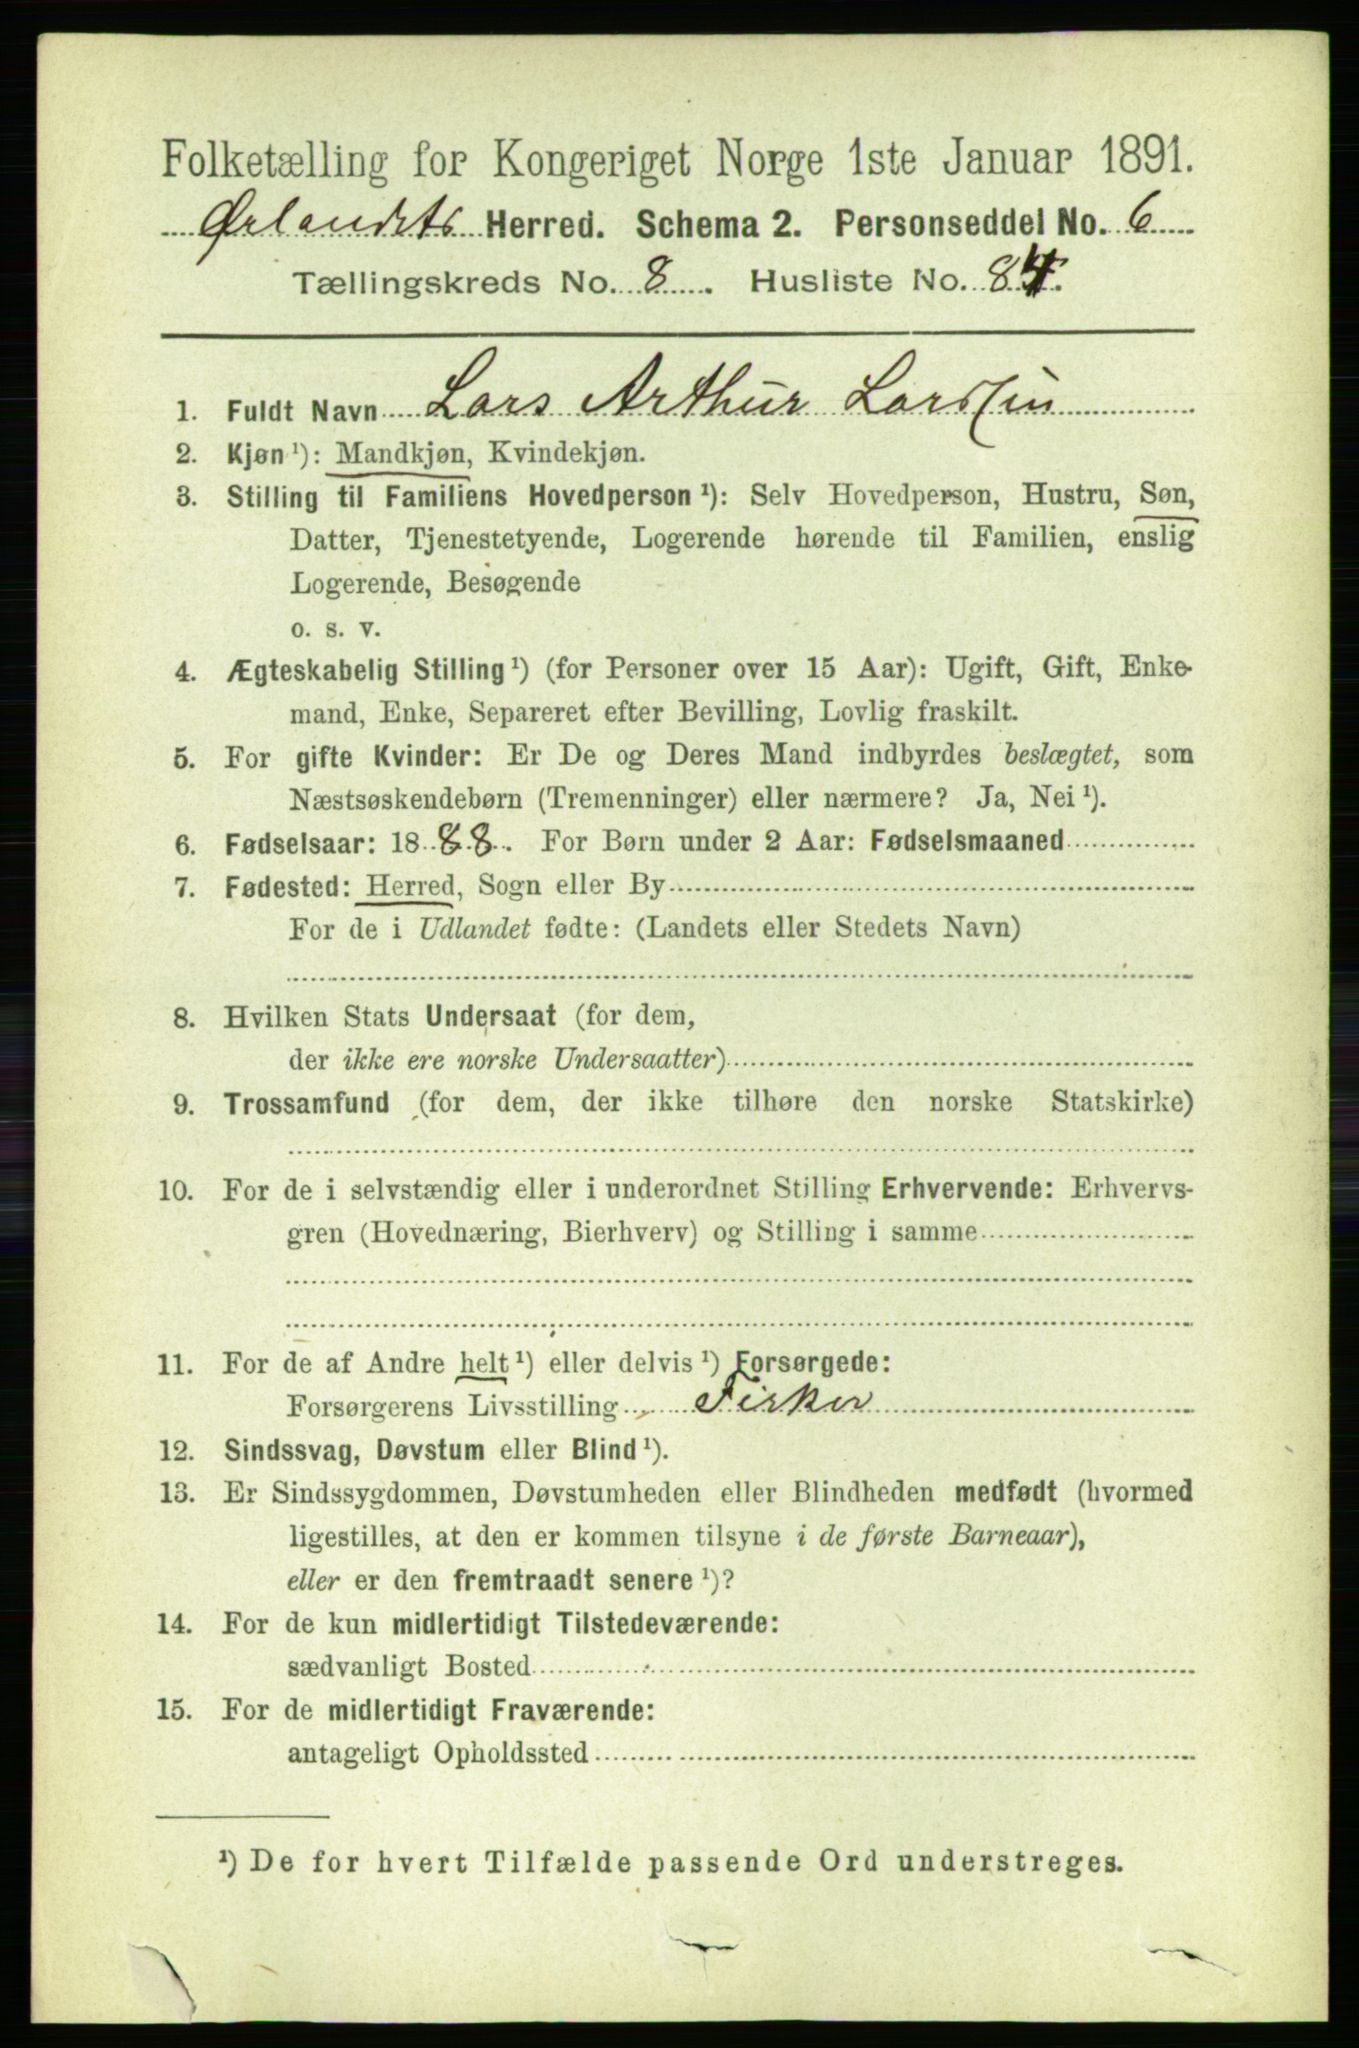 Folketælling for Kongeriget Norge 1ste Januar 1891.
Ørlandets Herred. Schema 2. Personseddel No. 6
Tællingskreds No. 8. Husliste No. 84.
1. Fuldt Navn Lars Arthur Larssen
2. Kjøn ¹): Mandkjøn, Kvindekjøn.
3. Stilling til Familiens Hovedperson ¹): Selv Hovedperson, Hustru, Søn,
Datter, Tjenestetyende, Logerende hørende til Familien, enslig
Logerende, Besøgende
o. s. v.
4. Ægteskabelig Stilling ¹) (for Personer over 15 Aar): Ugift, Gift, Enke-
mand, Enke, Separeret efter Bevilling, Lovlig fraskilt.
5. For gifte Kvinder: Er De og Deres Mand indbyrdes beslægtet, som
Næstsøskendebørn (Tremenninger) eller nærmere? Ja, Nei ¹).
6. Fødselsaar: 1888. For Børn under 2 Aar: Fødselsmaaned
7. Fødested: Herred, Sogn eller By
For de i Udlandet fødte: (Landets eller Stedets Navn)
8. Hvilken Stats Undersaat (for dem,
der ikke ere norske Undersaatter)
9. Trossamfund (for dem, der ikke tilhøre den norske Statskirke)
10. For de i selvstændig eller i underordnet Stilling Erhvervende: Erhvervs-
gren (Hovednæring, Bierhverv) og Stilling i samme
11. For de af Andre helt ¹) eller delvis ¹) Forsørgede:
Forsørgerens Livsstilling Fisker
12. Sindssvag, Døvstum eller Blind ¹).
13. Er Sindssygdommen, Døvstumheden eller Blindheden medfødt (hvormed
ligestilles, at den er kommen tilsyne i de første Barneaar),
eller er den fremtraadt senere ¹)?
14. For de kun midlertidigt Tilstedeværende:
sædvanligt Bosted
15. For de midlertidigt Fraværende:
antageligt Opholdssted
¹) De for hvert Tilfælde passende Ord understreges.